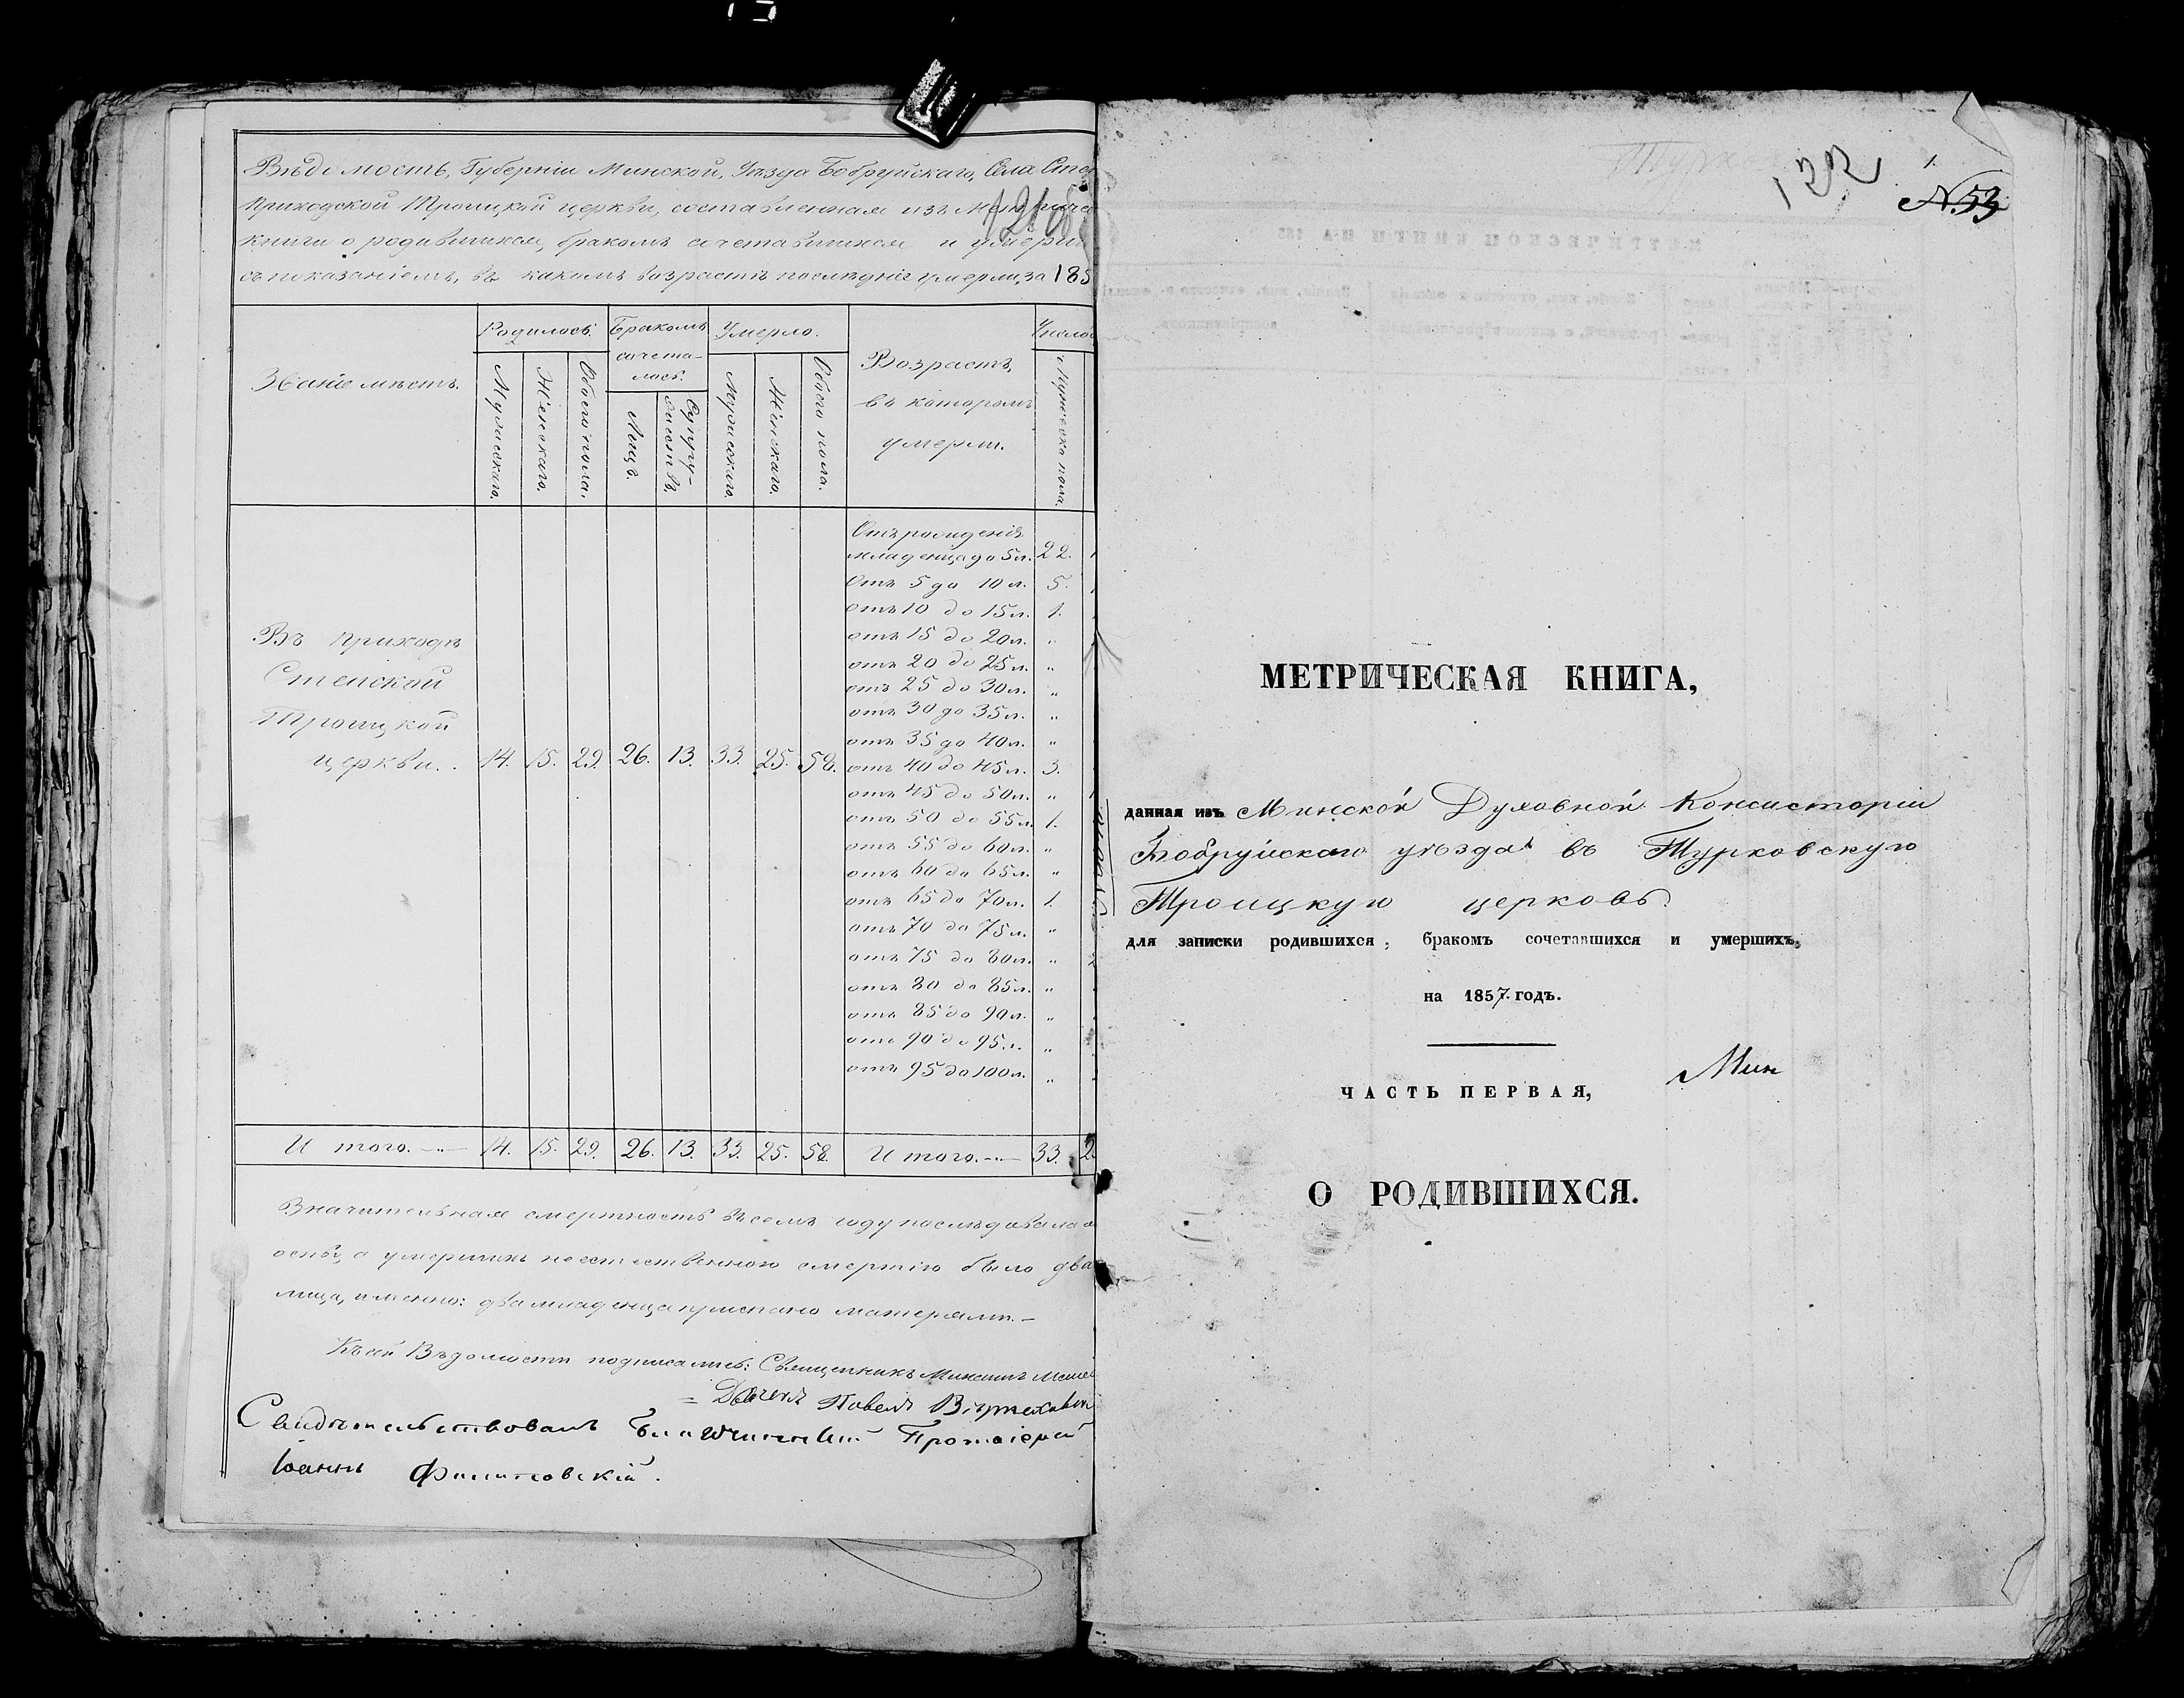 Вѣдомость, Губерніи Минской, Уѣзда Бобруйскаго, Села Сте
Приходской Троицкой церкви, составленная изъ Метриче
книги о родившихся, бракомъ сочетавшихся и умерш
съ показаніемъ, въ какомъ возрастѣ послѣдніе умерли, за 185
Званіе мѣстъ.
Родилось.
Мужескаго.
Женскаго.
Обоего пола.
Бракомъ
сочета-
лось.
Лицъ.
Супру-
жествъ.
Умерло.
Мужескаго.
Женскаго.
Обоего пола.
Возрастъ,
въ которомъ
умерли.
Число
Мужеска пола.
Въ приходѣ
Степской
Троицкой
церкви. 14. 15. 29. 26. 13. 33. 25. 58.
Отъ рожденія
младенца до 5 л. 22.
Отъ 5 до 10 л. 5.
отъ 10 до 15 л. 1.
отъ 15 до 20 л. "
отъ 20 до 25 л. "
отъ 25 до 30 л. "
отъ 30 до 35 л. "
отъ 35 до 40 л. "
отъ 40 до 45 л. 3.
отъ 45 до 50 л. "
отъ 50 до 55 л. 1.
отъ 55 до 60 л. "
отъ 60 до 65 л. "
отъ 65 до 70 л. 1.
отъ 70 до 75 л. "
отъ 75 до 80 л. "
отъ 80 до 85 л. "
отъ 85 до 90 л. "
отъ 90 до 95 л. "
отъ 95 до 100 л. "
И того. 14. 15. 29. 26. 13. 33. 25. 58. И того. 33. 2
Значительная смертность въ семъ году послѣдовала о
оспы, а умершихъ неестественною смертію было два
лица, именно: два младенца приспано матерями.
Къ сей Вѣдомости подписались: Священникъ Михаилъ
Дьячекъ Павелъ
Свидѣтельствовалъ Благочинный Протоіерей
Іоаннъ
122
1.
N. 53
МЕТРИЧЕСКАЯ КНИГА,
данная изъ Минской Духовной Консисторіи
Бобруйскаго уѣзда въ Турковскую
Троицкую церковь
для записки родившихся, бракомъ сочетавшихся и умершихъ,
на 1857. годъ.
Мин
ЧАСТЬ ПЕРВАЯ,
О РОДИВШИХСЯ.